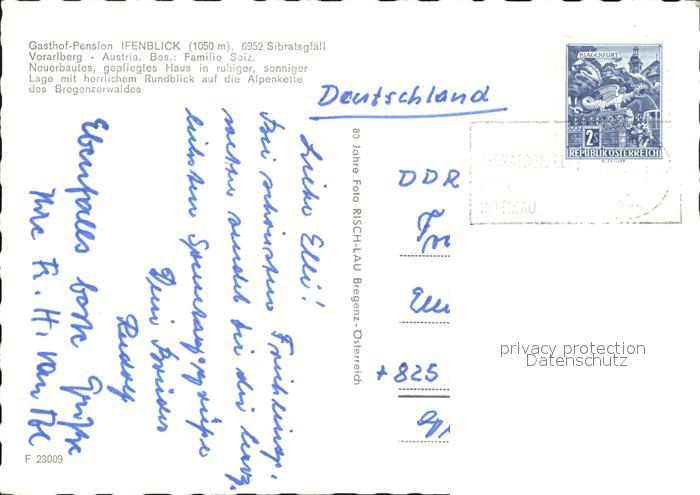 Gasthof-Pension IFENBLICK (1050 m), 6952 Sibratsgfäll
Vorarlberg - Austria. Bes.: Familie Seiz.
Neuerbautes, gepflegtes Haus in ruhiger, sonniger
Lage mit herrlichem Rundblick auf die Alpenkette
des Bregenzerwaldes
Deutschland
KLAGENFURT
2S
REPUBLIK ÖSTERREICH
DDR
+825
80 Jahre Foto RISCH-LAU Bregenz-Österreich
Liebe Elli!
Bei schönstem Frühlings-
wetter sendet dir die herz-
lichsten Sonntagsgrüße
Dein Bruder
Rudolf
Ebenfalls beste Grüße
Ihre Fr. H.
privacy protection
Datenschutz
F 23009